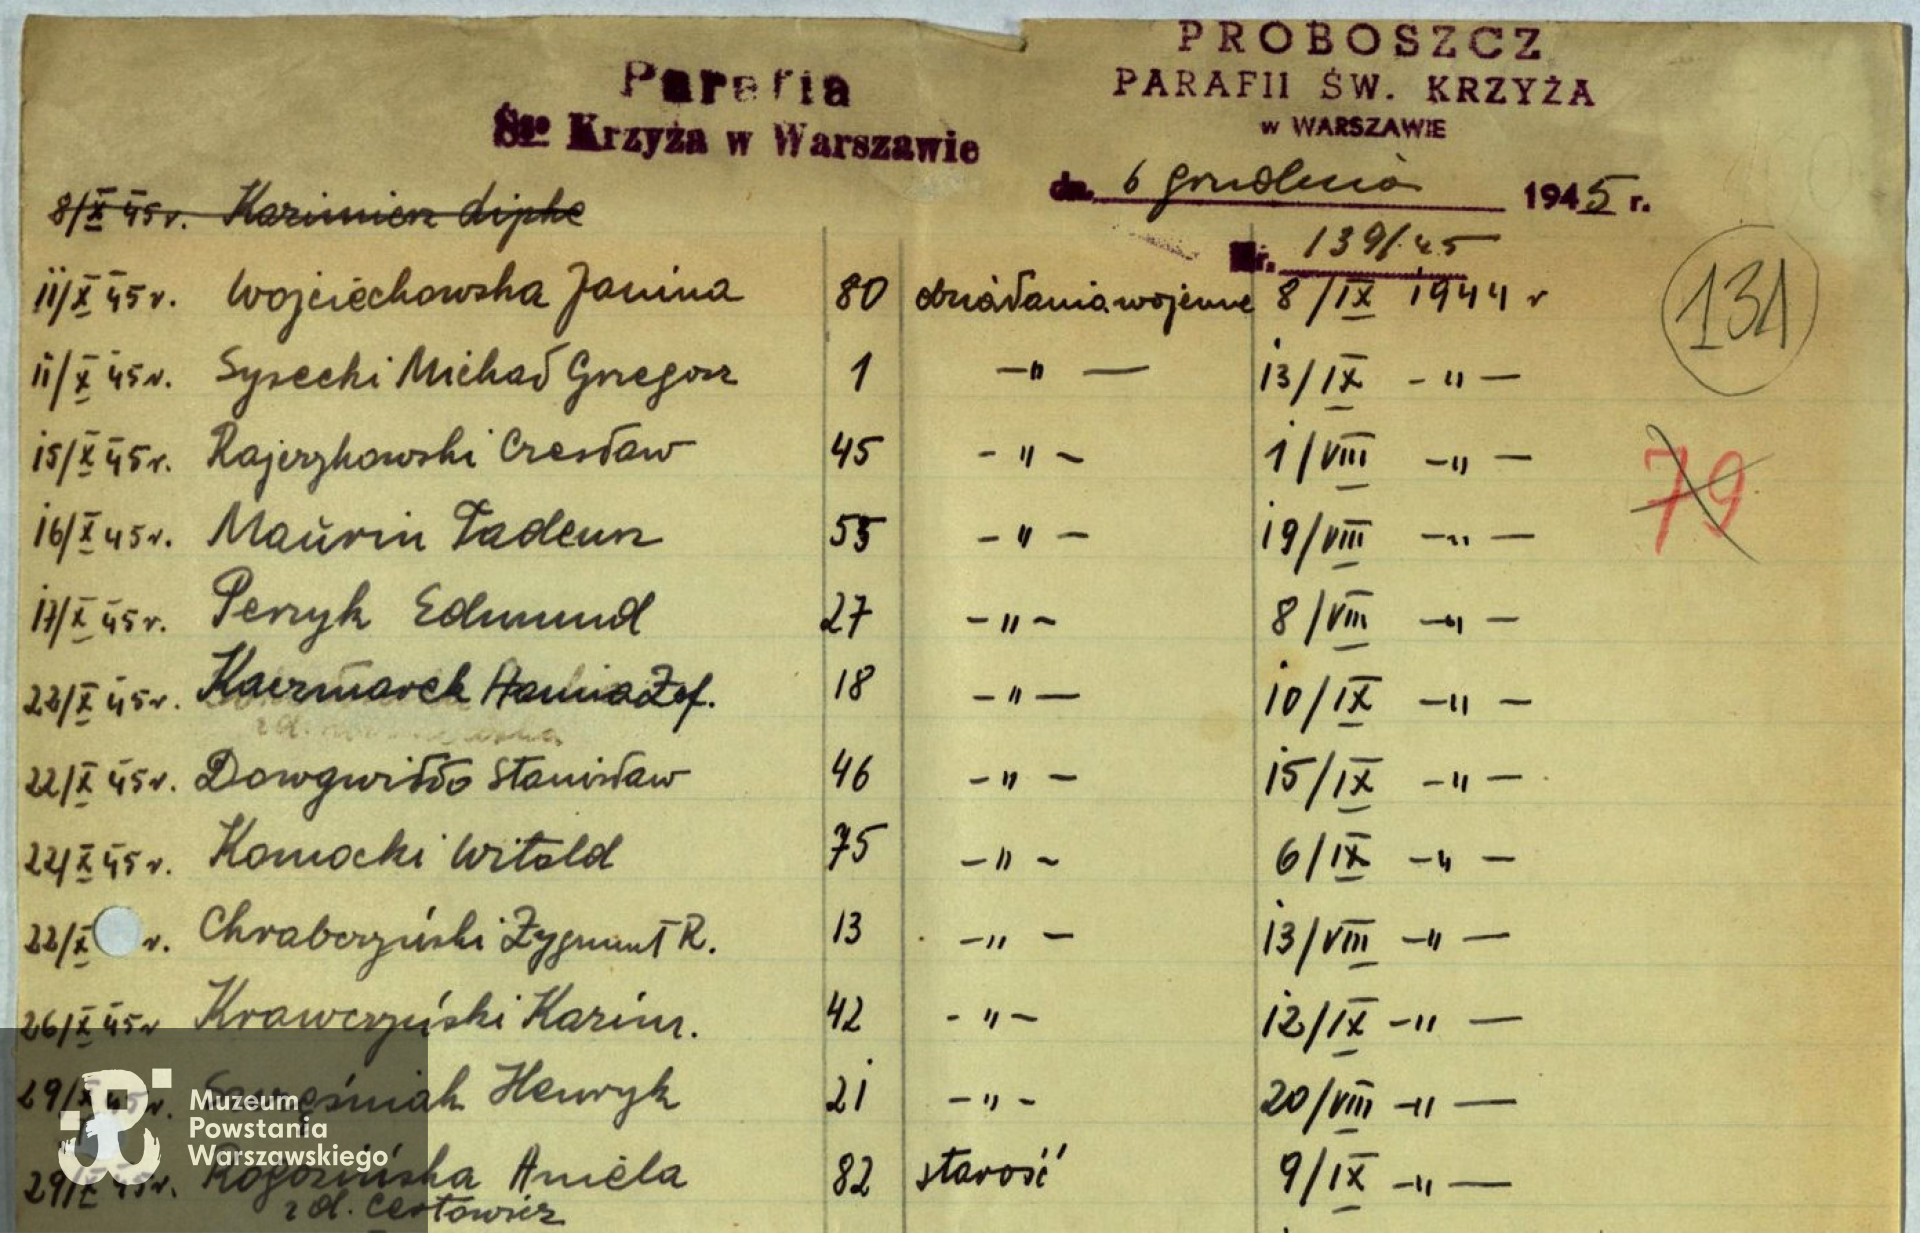 Parafia
Św. Krzyża w Warszawie
PROBOSZCZ
PARAFII ŚW. KRZYŻA
w WARSZAWIE
dn. 6 grudnia 1945 r.
Nr. 139/45
8/X 45 r. Kazimierz Lipke
11/X 45 r. Wojciechowska Janina 80 działania wojenne 8/IX 1944 r
131
11/X 45 r. Sysecki Michał Grzegorz 1 —"— 13/IX -"—
15/X 45 r. Rajerzykowski Czesław 45 -"- 1/VIII -"—
79
16/X 45 r. Maurin Tadeusz 55 -"- 19/VIII -"—
17/X 45 r. Perzyk Edmund 27 -"- 8/VIII -"—
22/X 45 r. Kaczmarek Zof. 18 -"— 10/IX -"—
22/X 45 r. Dowgwiłło Stanisław 46 -"- 15/IX -"—
22/X 45 r. Komocki Witold 75 -"- 6/IX -"—
22/X r. Chrabczyński Zygmunt R. 13 -"- 13/VIII -"—
26/X 45 r Krawczyński Kazim. 42 -"- 12/IX -"—
29/X 45 r. Henryk 21 -"- 20/VIII -"—
29/X 45 r. Rogozińska Aniela 82 starość 9/IX -"—
z d. Cestowicz
Muzeum
Powstania
Warszawskiego